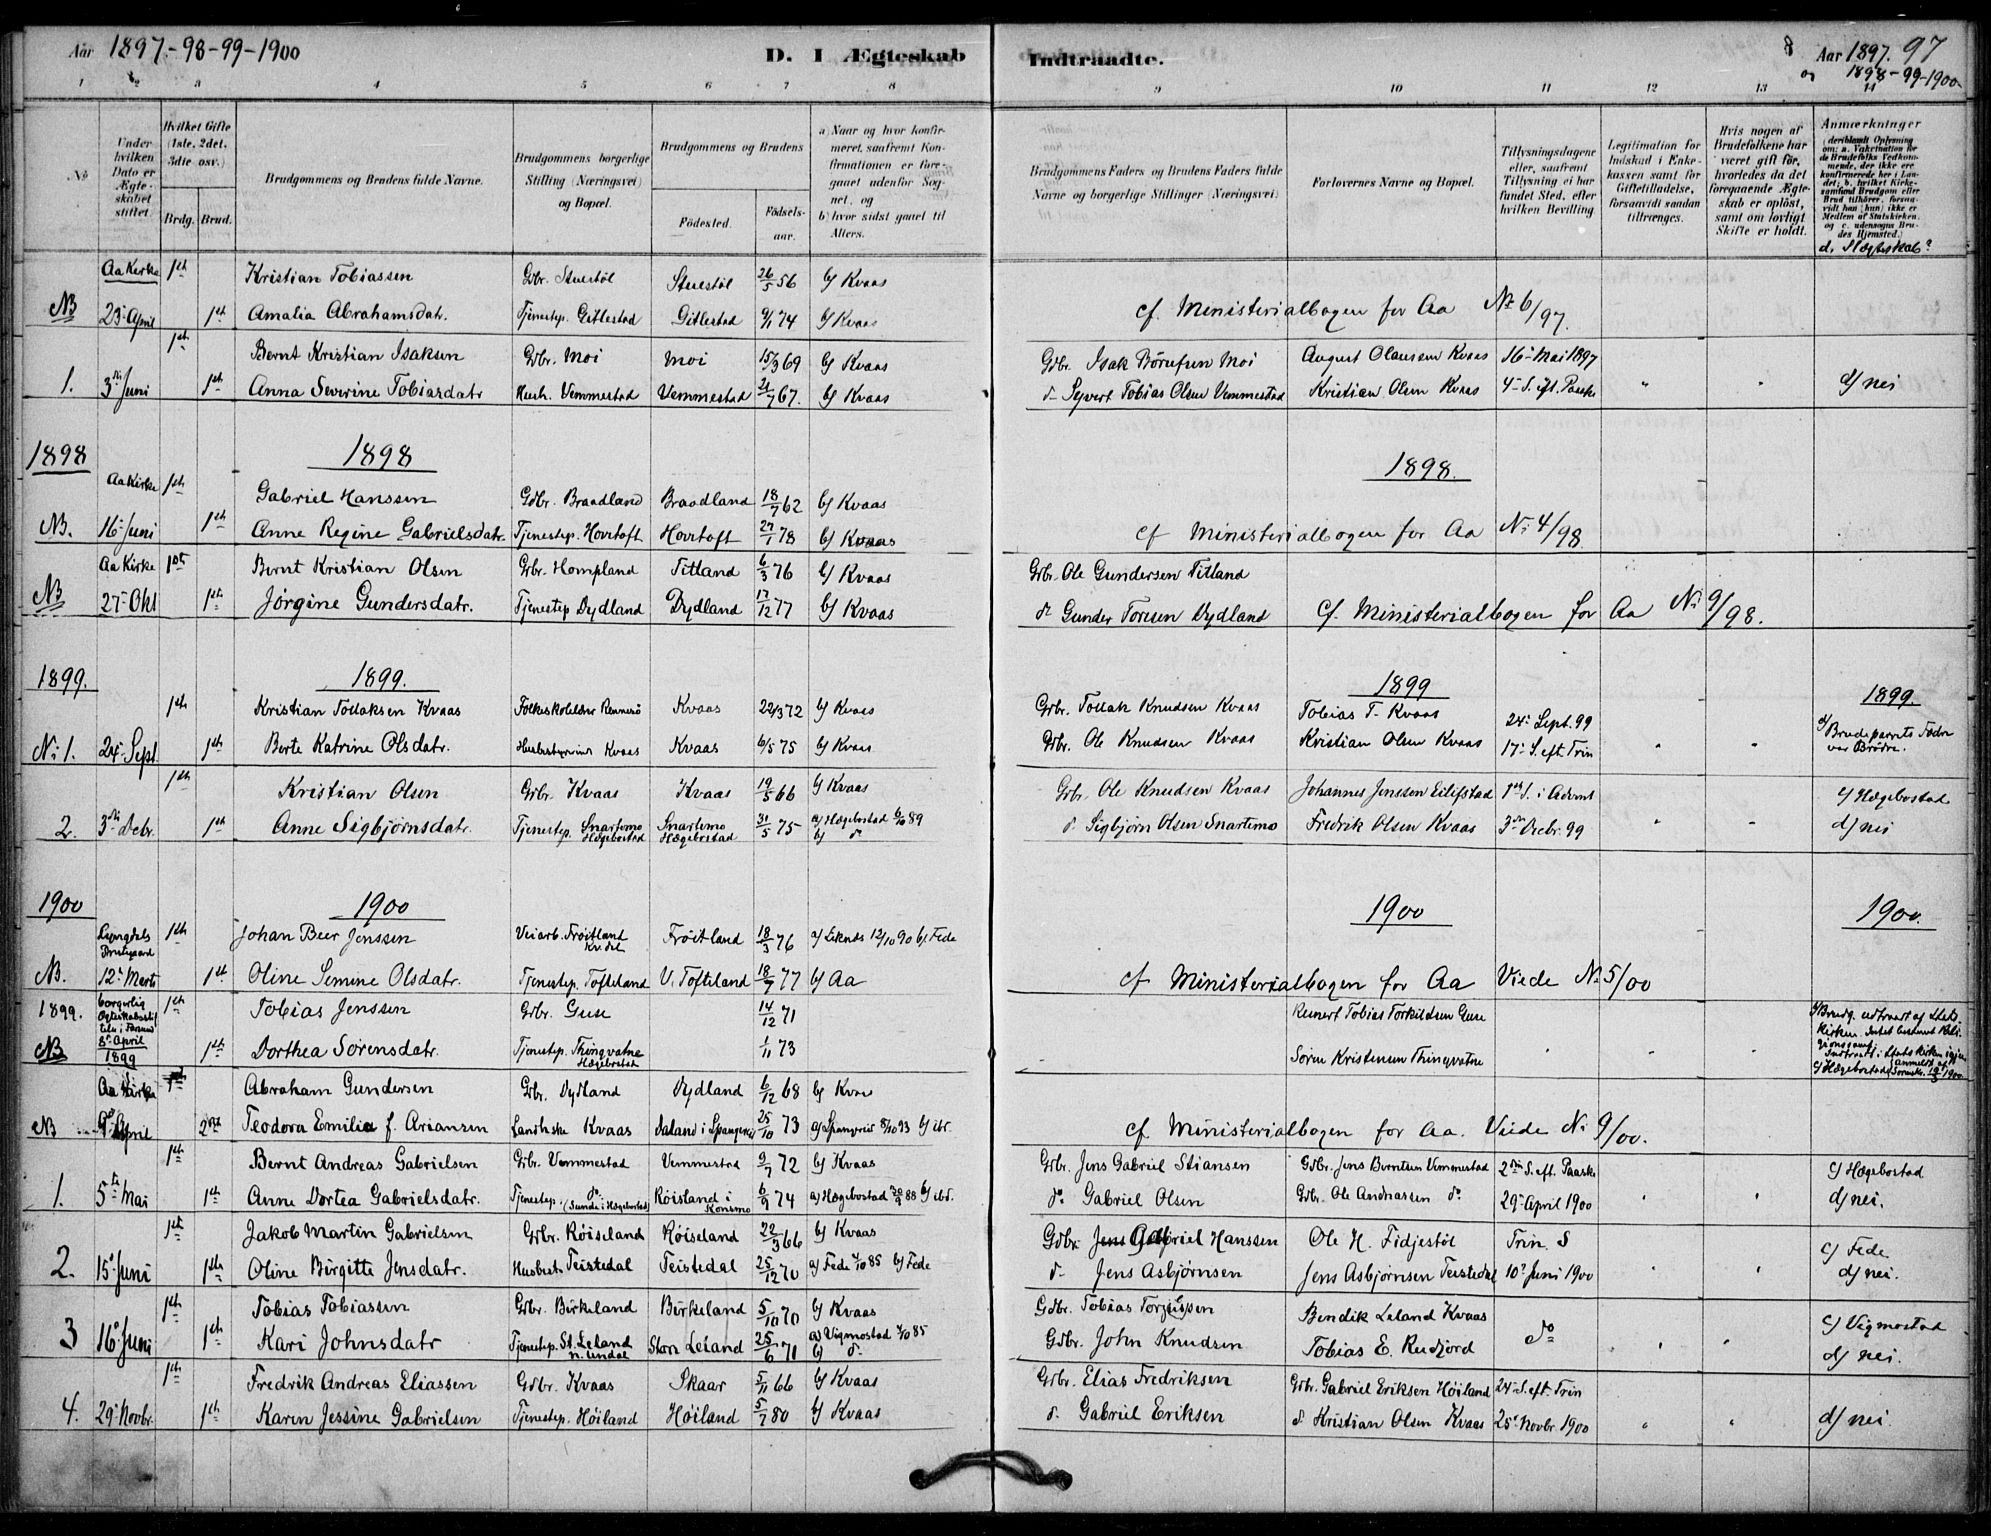 Aar 1897-98-99-1900
D. I Ægteskab Indtraadte.
8 Aar 1897. 97
og 1898-99-1900
1 2 3 4 5 6 7 8 9 10 11 12 13 14
No
Under hvilken Dato er Ægteskabet stiftet.
Hvilket Gifte (1ste, 2det, 3die osv.)
Brdg. Brud.
Brudgommens og Brudens fulde Navne.
Brudgommens borgerlige Stilling (Næringsvei) og Bopæl.
Brudgommens og Brudens
Fødested.
Fødselsaar.
a) Naar og hvor konfirmeret, saafremt Konfirmationen er foregaaet udenfor Sognet, og
b) hvor sidst gaaet til Alters.
Brudgommens Faders og Brudens Faders fulde Navne og borgerlige Stillinger (Næringsvei)
Forlovernes Navne og Bopæl.
Tillysningsdagene eller, saafremt Tillysning ei har fundet Sted, efter hvilken Bevilling
Legitimation for Indskud i Enkekassen samt for Giftetilladelse, forsaavidt saadan tiltrænges.
Hvis nogen af Brudefolkene har været gift før, hvorledes da det foregaaende Ægteskab er opløst, samt om lovligt Skifte er holdt.
Anmærkninger
(deriblandt Oplysning om: a. Vakcination for de Brudefolks Vedkommende, der ikke ere konfirmerede her i Landet; b. hvilket Kirkesamfund Brudgom eller Brud tilhører, forsaavidt han (hun) ikke er Medlem af Statskirken, og c. udensogns Brudes Hjemsted.)
d. Slægtskab?
Aa Kirke 1ste Kristian Tobiassen Gdbr. Stuestøl Stuestøl 26/5 56 b) Kvaas
NB 23 April 1ste Amalia Abrahamsdatr. Tjenestep. Gitlestad Gitlestad 9/1 74 b) Kvaas cf. Ministerialbogen for Aa No 6/97.
1ste Bernt Kristian Isaksen Gdbr. Moi Moi 15/3 69 b) Kvaas Gdbr. Isak Børufsen Moi August Olausen Kvaas 16 Mai 1897
1. 3die Juni 1ste Anna Severine Tobiasdatr Hush. Vemmestad Vemmestad 21/7 67. b) Kvaas do Syvert Tobias Olsen Vemmestad Kristian Olsen Kvaas 4 S. eft. Paaske " " d) nei
1898 1898 1898.
Aa Kirke 1ste Gabriel Hanssen Gdbr. Braadland Braadland 18/7 62 b) Kvaas
NB. 16 Juni 1ste Anne Regine Gabrielsdatr. Tjenestep. Hovtoft Hovtoft 27/1 78 b) Kvaas cf Ministerialbogen for Aa No 4/98
Aa Kirke 1ste Bernt Kristian Olsen Gdbr. Hompland Titland 6/3 76 b) Kvaas Gdbr. Ole Gundersen Titland
NB 27 Okt 1ste Jørgine Gundersdatr. Tjenestep Dydland Dydland 17/12 77 b) Kvaas do Gunder Torisen Dydland cf. Ministerialbogen for Aa No 9/98.
1899. 1899. 1899 1899.
1ste Kristian Tollaksen Kvaas Folkeskolelærer Rennesø Kvaas 22/3 72 b) Kvaas Gdbr. Tollak Knudsen Kvaas Tobias T. Kvaas 24 Sept. 99
No 1. 24 Sept 1ste Berte Katrine Olsdatr. Husbestyrerinde Kvaas Kvaas 6/5 75 b) Kvaas Gdbr. Ole Knudsen Kvaas Kristian Olsen Kvaas 17 S. eft. Trin " " d) Brudeparrets Fædre var Brødre.
1ste Kristian Olsen Gdbr. Kvaas Kvaas 19/5 66 b) Kvaas Gdbr. Ole Knudsen Kvaas Johannes Jenssen Eilifstad 1ste S. i Advent c) Hægebostad
2. 3die Decbr. 1ste Anne Sigbjørnsdatr. Tjenestep. Snartemo Hægebostad Snartemo Hægebostad 31/5 75 a) Hægebostad 6/10 89 b) do do Sigbjørn Olsen Snartemo Fredrik Olsen Kvaas 3die Decbr. 99 " " d) nei
1900 1900 1900 1900.
Lyngdals Prestegaard 1ste Johan Beer Jenssen Veiarb. Frøitland Kv.del Frøitland 18/3 76 a) Liknes 12/10 90 b) Fede
NB. 12 Marts 1ste Oline Semine Olsdatr. Tjenestep. Tofteland V. Tofteland 18/7 77 b) Aa cf Ministerialbogen for Aa Viede No 5/00
1899. borgerlig Ægteskabsstiftelse i Farsund 1ste Tobias Jenssen Gdbr. Guse 14/12 71 Reinert Tobias Torkildsen Guse
NB 8 April 1899 1ste Dorthea Sørensdatr. Tjenestep. Thingvatne Hægebostad 1/11 73 Søren Kristensen Thingvatne " " b) Brudg. udtraadt af Statskirken Intet bestemt Religionssamf. Indtraadt i Statskirken igjen c) Hægebostad
Aa Kirke 1ste Abraham Gundersen Gdbr. Dydland Dydland 6/12 68 b) Kvaas
NB 9 April 2det Teodora Emilie f. Ariansen Landhske Kvaas Daland i Spangereid 25/10 73 a) Spangereid 8/10 93 b) ibr. cf Ministerialbogen for Aa. Viede No 9/00.
1ste Bernt Andreas Gabrielsen Gdbr. Vemmestad Vemmestad 9/7 72 b) Kvaas Gdbr. Jens Gabriel Stiansen Gdbr. Jens Berntsen Vemmestad 2den S. eft. Paaske c) Hægebostad
1. 5te Mai 1ste Anne Dortea Gabrielsdatr. Tjenestep. do (Sunde i Hægebostad) Røisland i Konsmo 6/9 74 a) Hægebostad 30/9 88 b) ibd. do Gabriel Olsen Gdbr. Ole Andreassen do 29 April 1900 " " d) nei.
1ste Jakob Martin Gabrielsen Gdbr. Røiseland Røiseland 22/3 66 b) Kvaas Gdbr. Jens Gabriel Hanssen Ole H. Fidjestøl Trin. S c) Fede
2. 15 Juni 1ste Oline Birgitte Jensdatr. Husbest. Teistedal Teistedal 25/12 70 a) Fede 4/10 85 b) Fede do Jens Asbjørnsen Jens Asbjørnsen Teistedal 10 Juni 1900 " " d) nei.
1ste Tobias Tobiassen Gdbr. Birkeland Birkeland 5/10 70 b) Kvaas Gdbr. Tobias Torgiersen Bendik Leland Kvaas c) Vigmostad
3 16 Juni 1ste Kari Johnsdatr Tjenestep. St. Leland N. Undal Stor Leland 25/6 71 a) Vigmostad 4/10 85 b) do Gdbr. John Knudsen Tobias E. Rudjord do " " d) nei.
1ste Fredrik Andreas Eliassen Gdbr. Kvaas Skaar 5/11 66 b) Kvaas Gdbr. Elias Fredriksen Gdbr. Gabriel Eriksen Høiland 24 S. eft. Trin
4. 29 Novbr. 1ste Karen Jessine Gabrielsen Tjenestep. Høiland Høiland 5/7 80 b) Kvaas do Gabriel Eriksen do Kristian Olsen Kvaas 25 Novbr. 1900 " " d) nei.